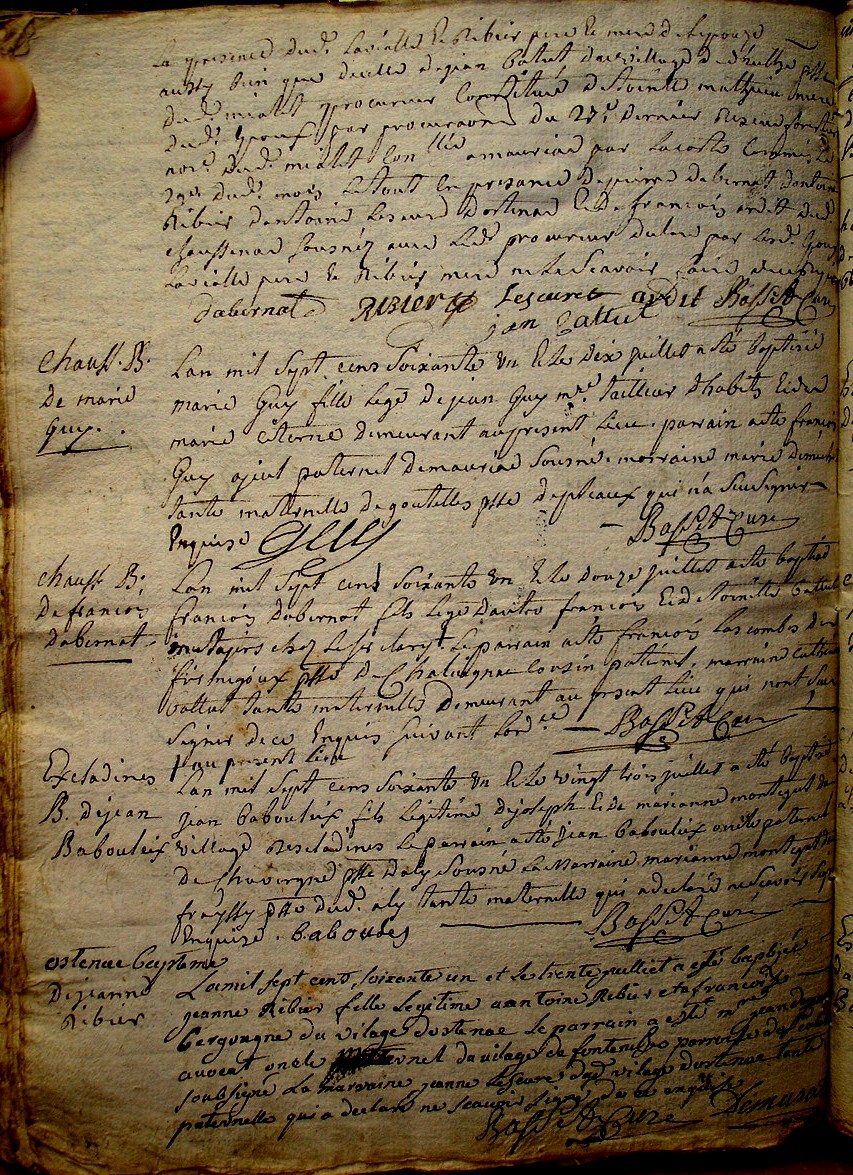 la presence dud. Lavialle & Ribier pere & mere de lepouze
aussy bien que de celle de jean batut du village de
dud. mialet procureur constitué dtoinette mathieu mere
dud. epoux par procuration du 27e dernier
nore. dud. mialet con llée a mauriac par lacoste commis le
29e dud. mois le tout en presance de pierre dabernat dantoine
Ribier dantoine Lescure dostenac & de francois ardit dud.
chaussenac sousnés avec led. procureur
Lavialle pere & Ribier mere ne scavoir faire
dabernat RIBIER Lescure ardit Basset Curé
jan Battut
chauss. B.
de marie
Guy.
Lan mil sept cens soixante un & le dix juillet a esté baptisée
marie Guy fille lege de jean Guy mre. tailleur dhabits & de
marie citerne demeurant au present lieu. parrain a esté francois
Guy ajeul paternel de mauriac sousné. marraine marie
tante maternelle de goutelles psse de pleaux qui na sceu signer
enquise Guy Basset Curé
chauss B.
de francois
dabernat
Lan mil sept cens soixante un & le douze juillet a esté baptisé
francois dabernat fils lege dautre francois & dtoinette battut
metayers chez le sr clary. Le parrain a esté francois Lascombe de
firmigoux psse de Chalvagnac cousin paternel, marraine
battut tante maternelle demeurant au present lieu qui nont sceu
signer de ce enquis suivant lordce Basset Curé
au present lieu
Escladines
B. de jean
Babouleix
Lan mil sept cens soixante un & le vingt trois juillet a esté baptisé
jean babouleix fils légitime de joseph & de marianne montegut du
village descladines le parrain a esté jean babouleix oncle paternel
de Chavergne psse daly sousné La marraine marianne montegut de
frayssy psse dud. aly tante maternelle qui a declaré ne scavoir signer
enquise. babouleix Basset Curé
ostenac baptême
de jeanne
Ribier
Lamil sept cent soixante un et le trente juilliet a esté baptisée
jeanne Ribier fille legitime a antoine Ribier et a francoise
bergougne du vilage dostenac le parrain a esté mre jean
avocat oncle maternel du vilage de fontenilles parroisse de
soubsigné La marraine jeanne Lescure dud vilage dostenac tante
paternelle qui a declaré ne scavoir signer de ce enquise
Basset Curé